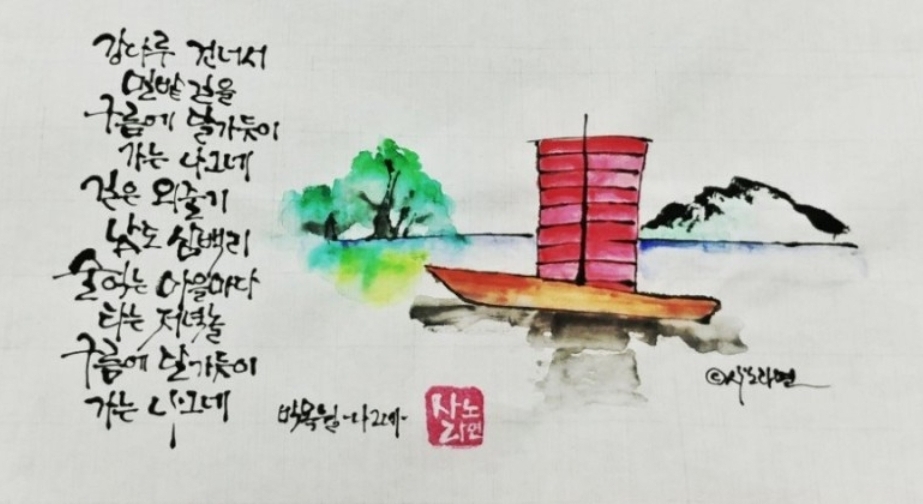 강나루 건너서
밀밭 길을
구름에 달가듯이
가는 나그네
길은 외줄기
남도 삼백리
술익는 마을마다
타는 저녁놀
구름에 달가듯이
가는 나그네
박목월 -나그네-
사노라면
©사노라면